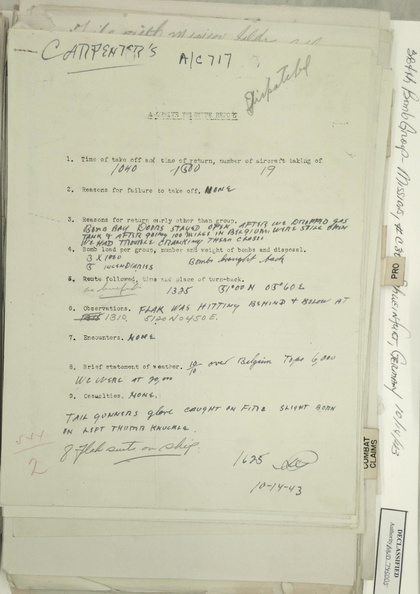 CARPENTER'S A/C 717
Dispatched
1. Time of take off and time of return, number of aircraft taking of
1040 1500 19
2. Reasons for failure to take off. NONE
3. Reasons for return early other than group.
BOMB BAY DOORS STAYED OPEN AFTER WE DROPPED GAS
TANK & AFTER GOING 100 MILES IN BELGIUM, WERE STILL OPEN
WE HAD TROUBLE CRANKING THEM CLOSED
4. Bomb load per group, number and weight of bombs and disposal.
3 X 1000 Bombs brought back
5 INCENDIARIES
5. Route followed, time and place of turn-back.
as briefed 1325 51°00 N 05°60 E
6. Observations. FLAK WAS HITTING BEHIND & BELOW AT
1310. 5120N 0450E.
7. Encounters. NONE
8. Brief statement of weather. 10/10 over Belgium Tops 6,000
WE WERE AT 20,000
9. Casualties. NONE.
TAIL GUNNERS glove CAUGHT ON FIRE SLIGHT BURN
ON LEFT THUMB KNUCKLE.
8-flak suits on ship.
2
1625
10-14-43
384th Bomb Group - Mission, Schweinfurt, Germany 10/14/43
PRO
COMBAT
CLAIMS
DECLASSIFIED
Authority